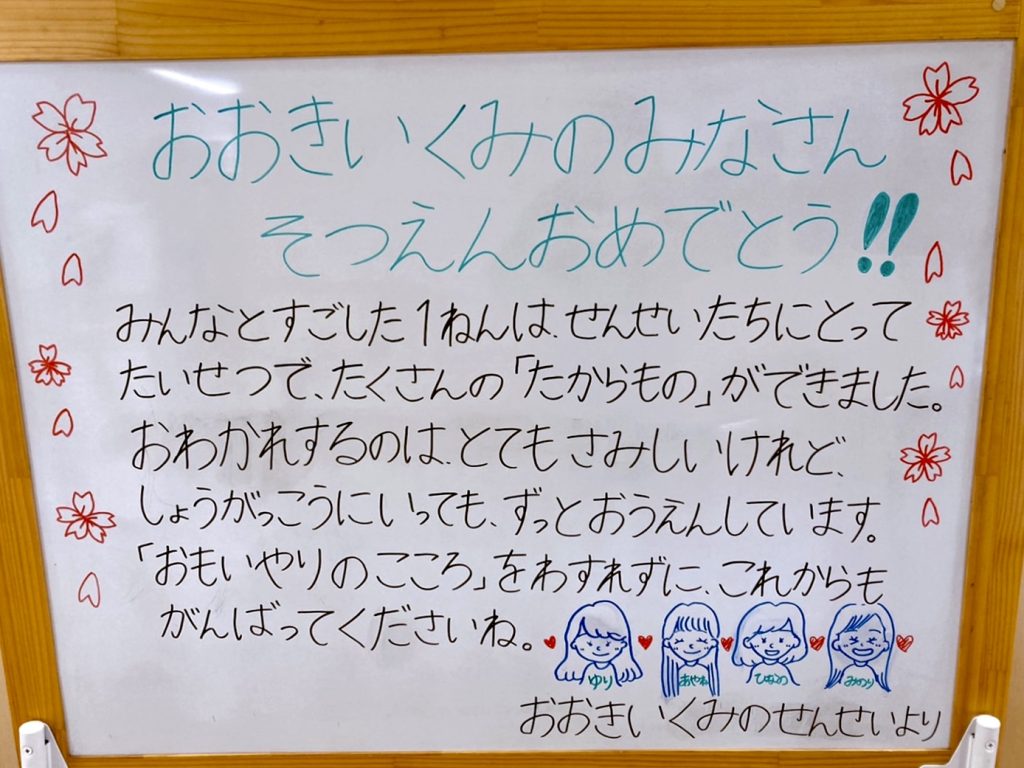 おおきいくみのみなさん
そつえんおめでとう!!
みんなとすごした1ねんは、せんせいたちにとって
たいせつで、たくさんの「たからもの」ができました。
おわかれするのは、とてもさみしいけれど、
しょうがっこうにいっても、ずっとおうえんしています。
「おもいやりのこころ」をわすれずに、これからも
がんばってくださいね。
ゆり あやね ひなの みのり
おおきいくみのせんせいより